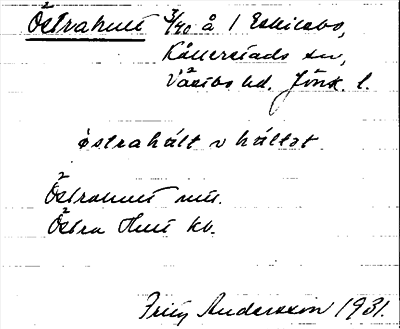 Östrahult 3/40 å 1 Eskilsbo,
Kållerstads sn,
Västbo hd. Jönk. l.
östrahált v háltət
Östrahult mtl.
Östra Hult kb.
Fritz Andersson 1931.